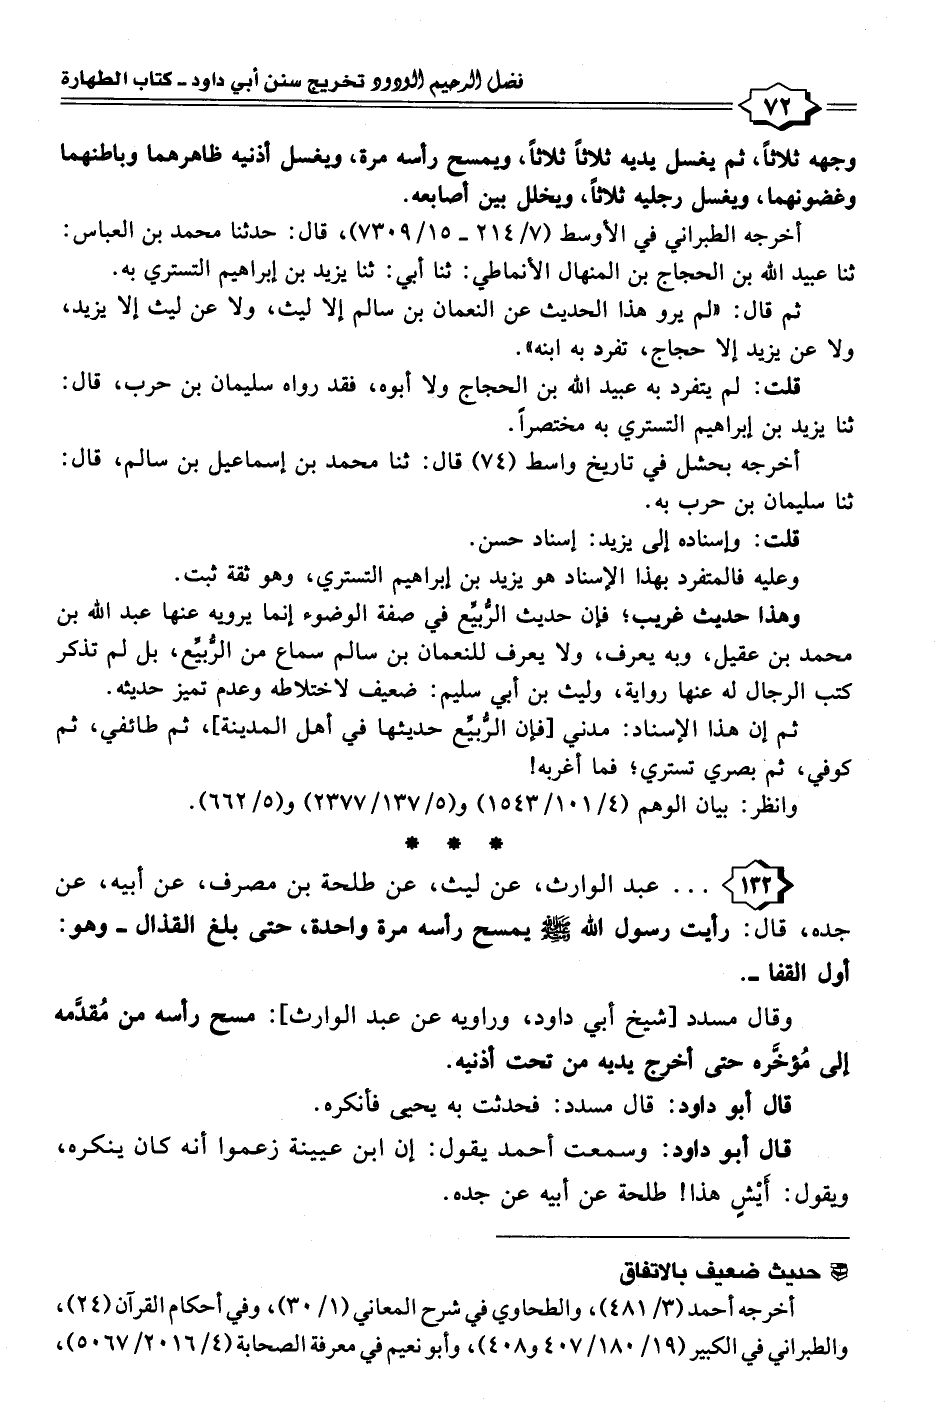 فضل الرحيم الودود تخريج سنن أبي داود - كتاب الطهارة
٧٢
وجهه ثلاثاً، ثم يغسل يديه ثلاثاً ثلاثاً، ويمسح رأسه مرة، ويغسل أذنيه ظاهرهما وباطنهما
وغضونهما، ويغسل رجليه ثلاثاً، ويخلل بين أصابعه.
أخرجه الطبراني في الأوسط (٧/ ٢١٤ - ١٥/ ٧٣٠٩)، قال: حدثنا محمد بن العباس:
ثنا عبيد الله بن الحجاج بن المنهال الأنماطي: ثنا أبي: ثنا يزيد بن إبراهيم التستري به.
ثم قال: «لم يرو هذا الحديث عن النعمان بن سالم إلا ليث، ولا عن ليث إلا يزيد،
ولا عن يزيد إلا حجاج، تفرد به ابنه».
قلت: لم يتفرد به عبيد الله بن الحجاج ولا أبوه، فقد رواه سليمان بن حرب، قال:
ثنا يزيد بن إبراهيم التستري به مختصراً.
أخرجه بحشل في تاريخ واسط (٧٤) قال: ثنا محمد بن إسماعيل بن سالم، قال:
ثنا سليمان بن حرب به.
قلت: وإسناده إلى يزيد: إسناد حسن.
وعليه فالمتفرد بهذا الإسناد هو يزيد بن إبراهيم التستري، وهو ثقة ثبت.
وهذا حديث غريب؛ فإن حديث الرُّبيِّع في صفة الوضوء إنما يرويه عنها عبد الله بن
محمد بن عقيل، وبه يعرف، ولا يعرف للنعمان بن سالم سماع من الرُّبيِّع، بل لم تذكر
كتب الرجال له عنها رواية، وليث بن أبي سليم: ضعيف لاختلاطه وعدم تميز حديثه.
ثم إن هذا الإسناد: مدني [فإن الرُّبيِّع حديثها في أهل المدينة]، ثم طائفي، ثم
كوفي، ثم بصري تستري؛ فما أغربه!
وانظر: بيان الوهم (٤/ ١٠١/ ١٥٤٣) و(٥/ ١٣٧/ ٢٣٧٧) و(٥/ ٦٦٢).
* * *
١٣٢ ... عبد الوارث، عن ليث، عن طلحة بن مصرف، عن أبيه، عن
جده، قال: رأيت رسول الله ﷺ يمسح رأسه مرة واحدة، حتى بلغ القذال - وهو:
أول القفا -.
وقال مسدد [شيخ أبي داود، وراويه عن عبد الوارث]: مسح رأسه من مُقدَّمه
إلى مُؤخَّره حتى أخرج يديه من تحت أذنيه.
قال أبو داود: قال مسدد: فحدثت به يحيى فأنكره.
قال أبو داود: وسمعت أحمد يقول: إن ابن عيينة زعموا أنه كان ينكره،
ويقول: أَيْشٍ هذا! طلحة عن أبيه عن جده.
حديث ضعيف بالاتفاق
أخرجه أحمد (٣/ ٤٨١)، والطحاوي في شرح المعاني (١/ ٣٠)، وفي أحكام القرآن (٢٤)،
والطبراني في الكبير (١٩/ ١٨٠/ ٤٠٧ و٤٠٨)، وأبو نعيم في معرفة الصحابة (٤/ ٢٠١٦/ ٥٠٦٧)،